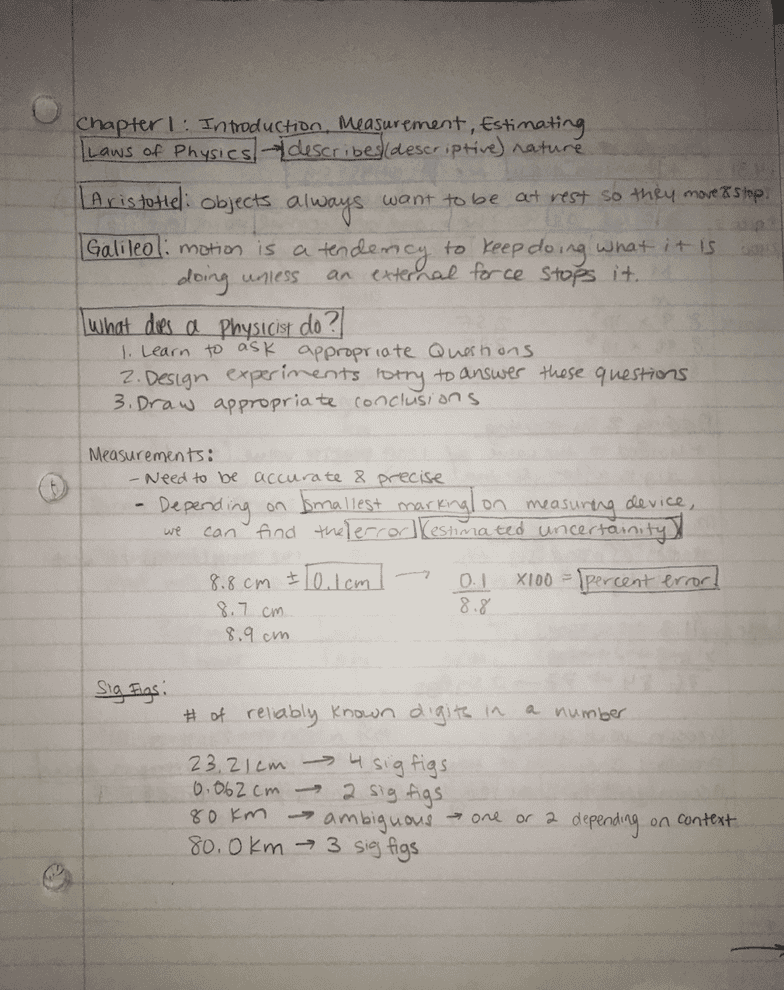 Chapter 1: Introduction, Measurement, Estimating
Laws of Physics → describes (descriptive) nature
Aristotle: objects always want to be at rest so they move & stop.
Galileo: motion is a tendency to keep doing what it is
doing unless an external force stops it.
What does a physicist do?
1. Learn to ask appropriate Questions
2. Design experiments to try to answer these questions
3. Draw appropriate conclusions
Measurements:
- Need to be accurate & precise
- Depending on smallest marking on measuring device,
we can find the error (estimated uncertainity)
8.8 cm ± 0.1cm → 0.1/8.8 x100 = percent error
8.7 cm
8.9 cm
Sig Figs:
# of reliably known digits in a number
23.21cm → 4 sig figs
0.062cm → 2 sig figs
80 km → ambiguous → one or 2 depending on context
80.0km → 3 sig figs
→